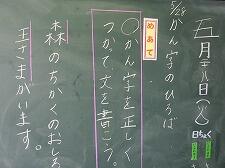 五月二十八日(火)
5/28 かん字のひろば
めあて
○かん字を正しく
つかって文を書こう。
森のちかくのおしろ
王さまがいます。
日ちょく